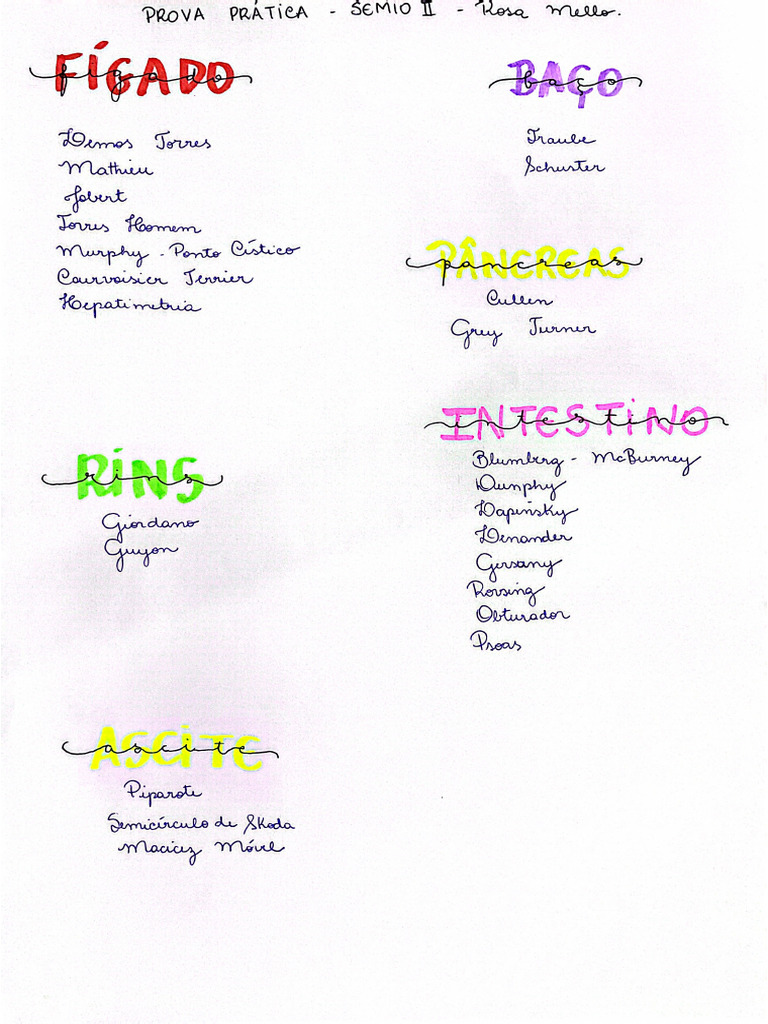 PROVA PRÁTICA - SEMIO II - Rosa Mello.
FÍGADO
fígado
Lemos Torres
Mathieu
Jobert
Torres Homem
Murphy - Ponto Cístico
Courvoisier Terrier
Hepatimetria
BAÇO
baço
Traube
Schuster
PÂNCREAS
pancreas
Cullen
Grey Turner
RINS
rins
Giordano
Guyon
INTESTINO
intestino
Blumberg - McBurney
Dunphy
Lapinsky
Lenander
Gersany
Rovsing
Obturador
Psoas
ASCITE
ascite
Piparote
Semicírculo de Skoda
Macicez Móvel